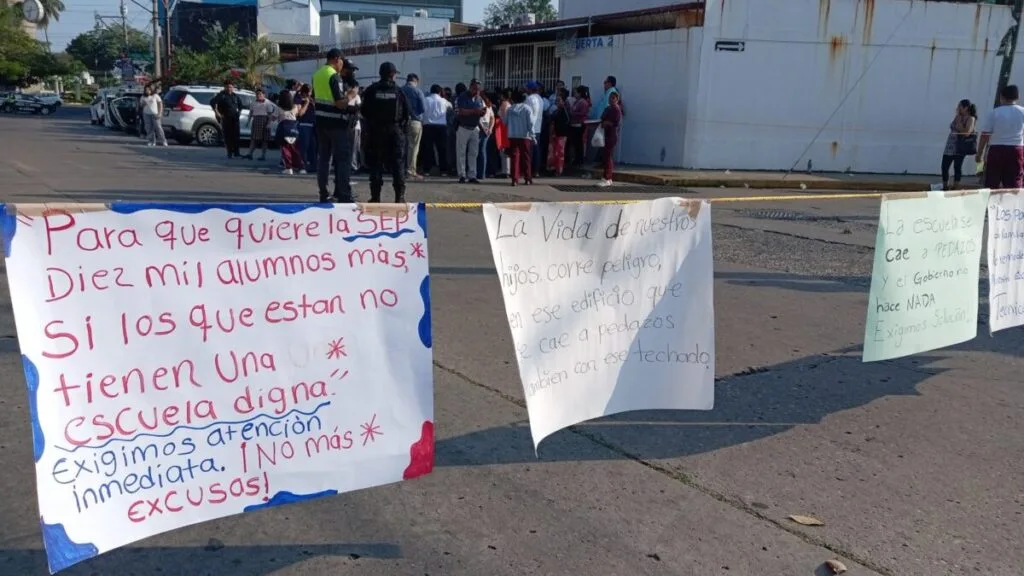 "Para que quiere la SEP
Diez mil alumnos más,*
Si los que estan no
tienen Una *
escuela digna."
Exigimos atención
inmediata. ¡No más *
excusas!
La Vida de nuestros
hijos corre peligro,
en ese edificio que
se cae a pedazos
tambien con ese techado.
La escuela se
cae a PEDAZOS
y el Gobierno no
hace NADA
Exigimos Solución!
PUERTA 2